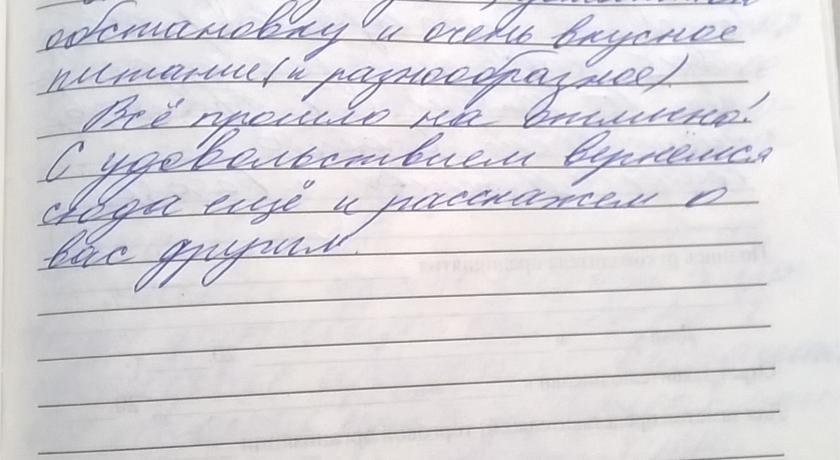 обстановку и очень вкусное
питание (и разнообразное).
Всё прошло на отлично!
С удовольствием вернёмся
сюда ещё и расскажем о
вас другим.